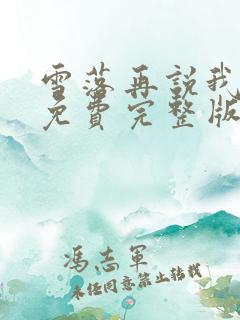 雪落再說我
免費完整版
馮志軍
未經同意禁止轉載